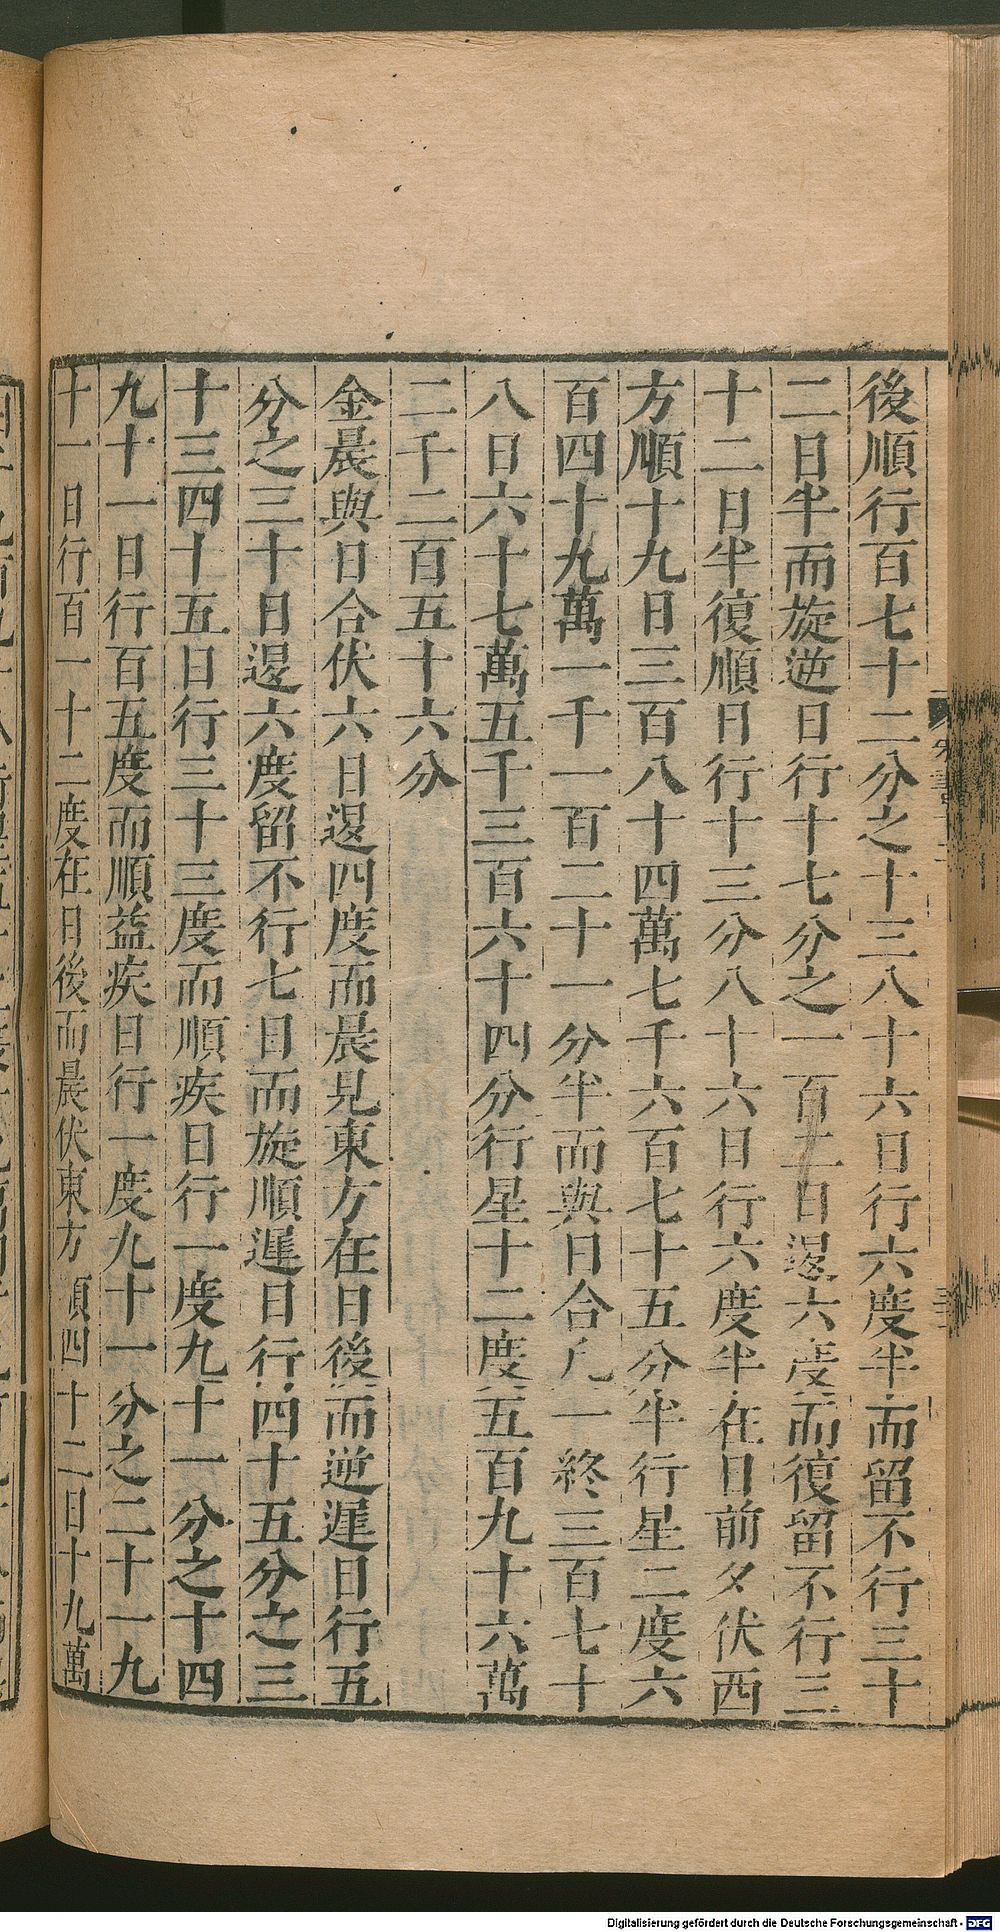 後順行百七十二分之十三八十六日行六度半而留不行三十
二日半而旋逆日行十七分之一百二日退六度而復留不行三
十二日半復順日行十三分八十六日行六度半在日前夕伏西
方順十九日三百八十四萬七千六百七十五分半行星二度六
百四十九萬一千一百二十一分半而與日合凡一終三百七十
八日六十七萬五千三百六十四分行星十二度五百九十六萬
二千二百五十六分
金晨與日合伏六日退四度而晨見東方在日後而逆遲日行五
分之三十日退六度留不行七日而旋順遲日行四十五分之三
十三四十五日行三十三度而順疾日行一度九十一分之十四
九十一日行百五度而順益疾日行一度九十一分之二十一九
十一日行百一十二度在日後而晨伏東方順四十二日十九萬
Digitalisierung gefördert durch die Deutsche Forschungsgemeinschaft - DFG